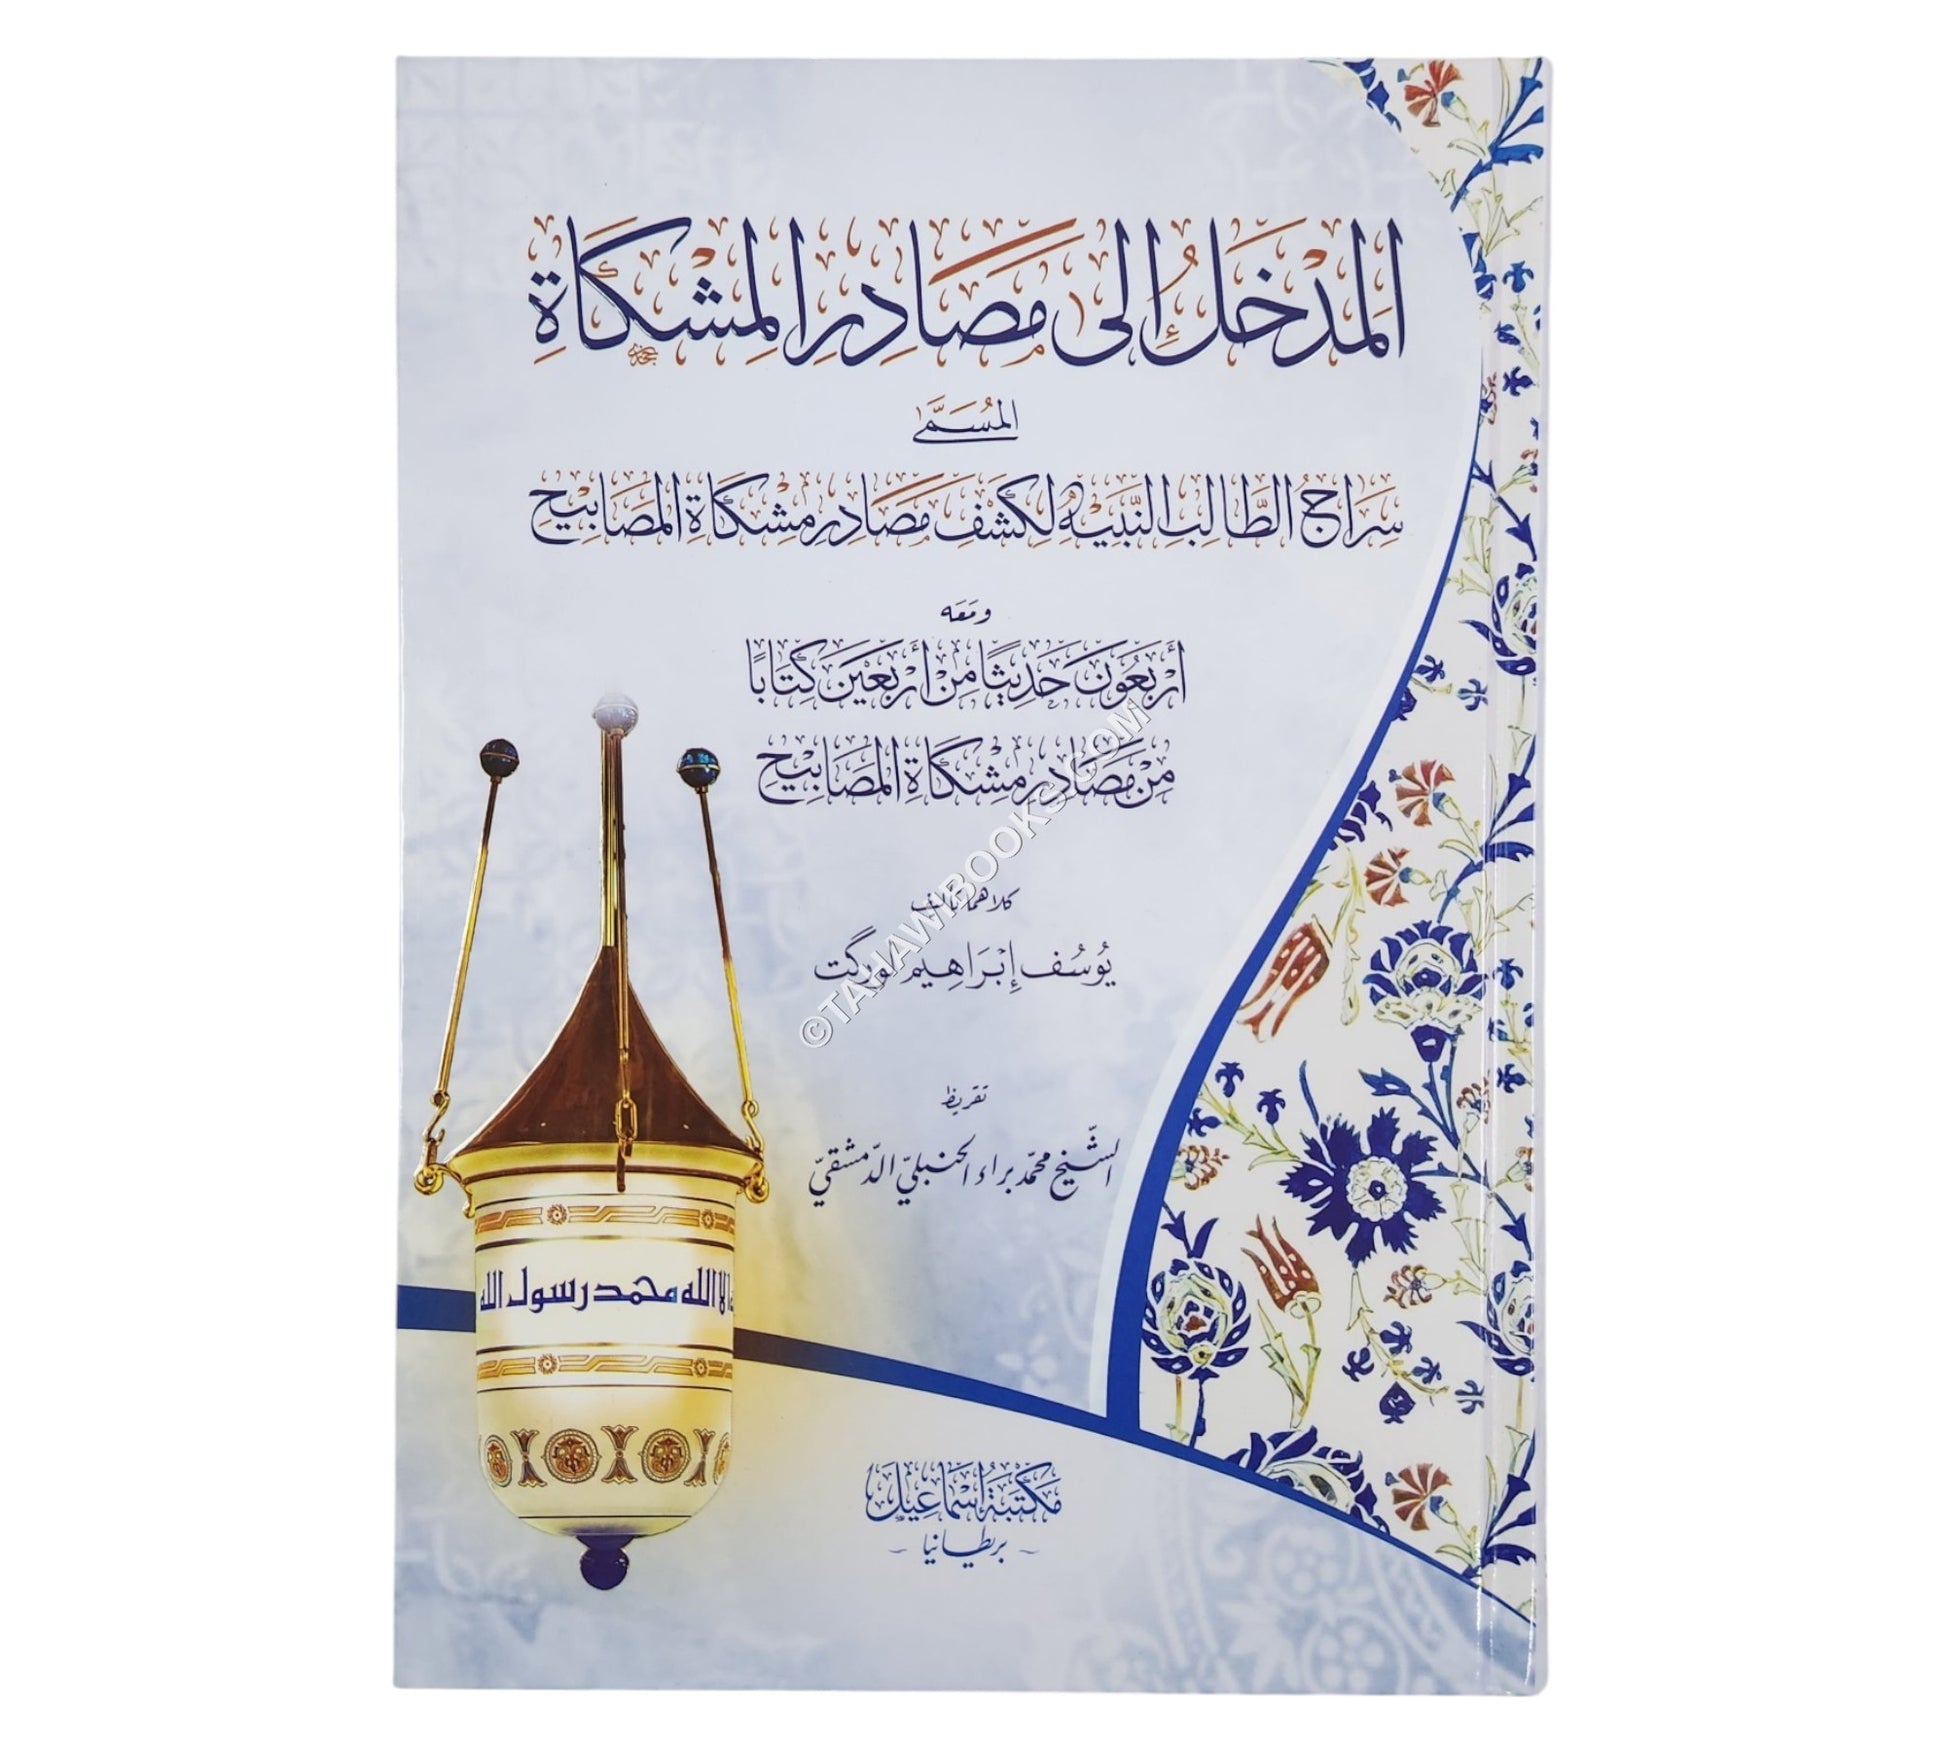 المَدْخَلُ إِلى مَصَادِرِ المِشْكَاةِ
المُسَمَّى
سِرَاجُ الطَّالِبِ النَّبِيهِ لِكَشْفِ مَصَادِرِ مِشْكَاةِ المَصَابِيْحِ
وَمَعَه
أَرْبَعُونَ حَدِيثًا مِنْ أَرْبَعِيْنَ كِتَابًا
مِنْ مَصَادِرِ مِشْكَاةِ المَصَابِيْحِ
كلاهما تأليف
يُوسُف إِبْرَاهِيم نُورگت
تقريظ
الشّيخ محمّد براء الحنبليّ الدّمشقيّ
لا الله محمد رسول الله
مَكْتَبَةُ إِسْمَاعِيل
- بريطانيا -
©TAHAWIBOOKS.COM